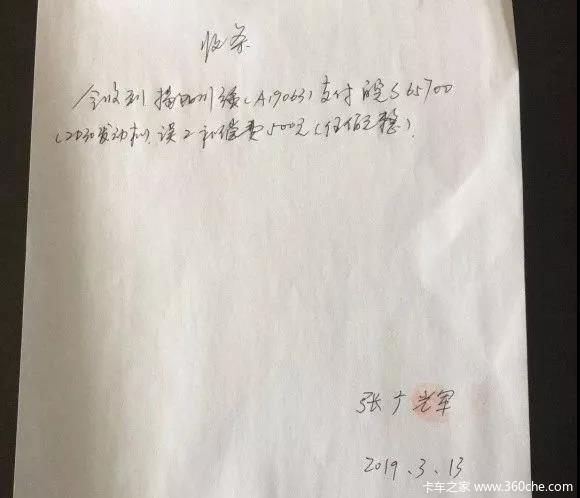 收条
今收到 杨四川强(A19063)支付 皖S65700
(2030发动机)误工补偿费500元(伍佰元整).
张广光军
2019.3.13
卡车之家 www.360che.com